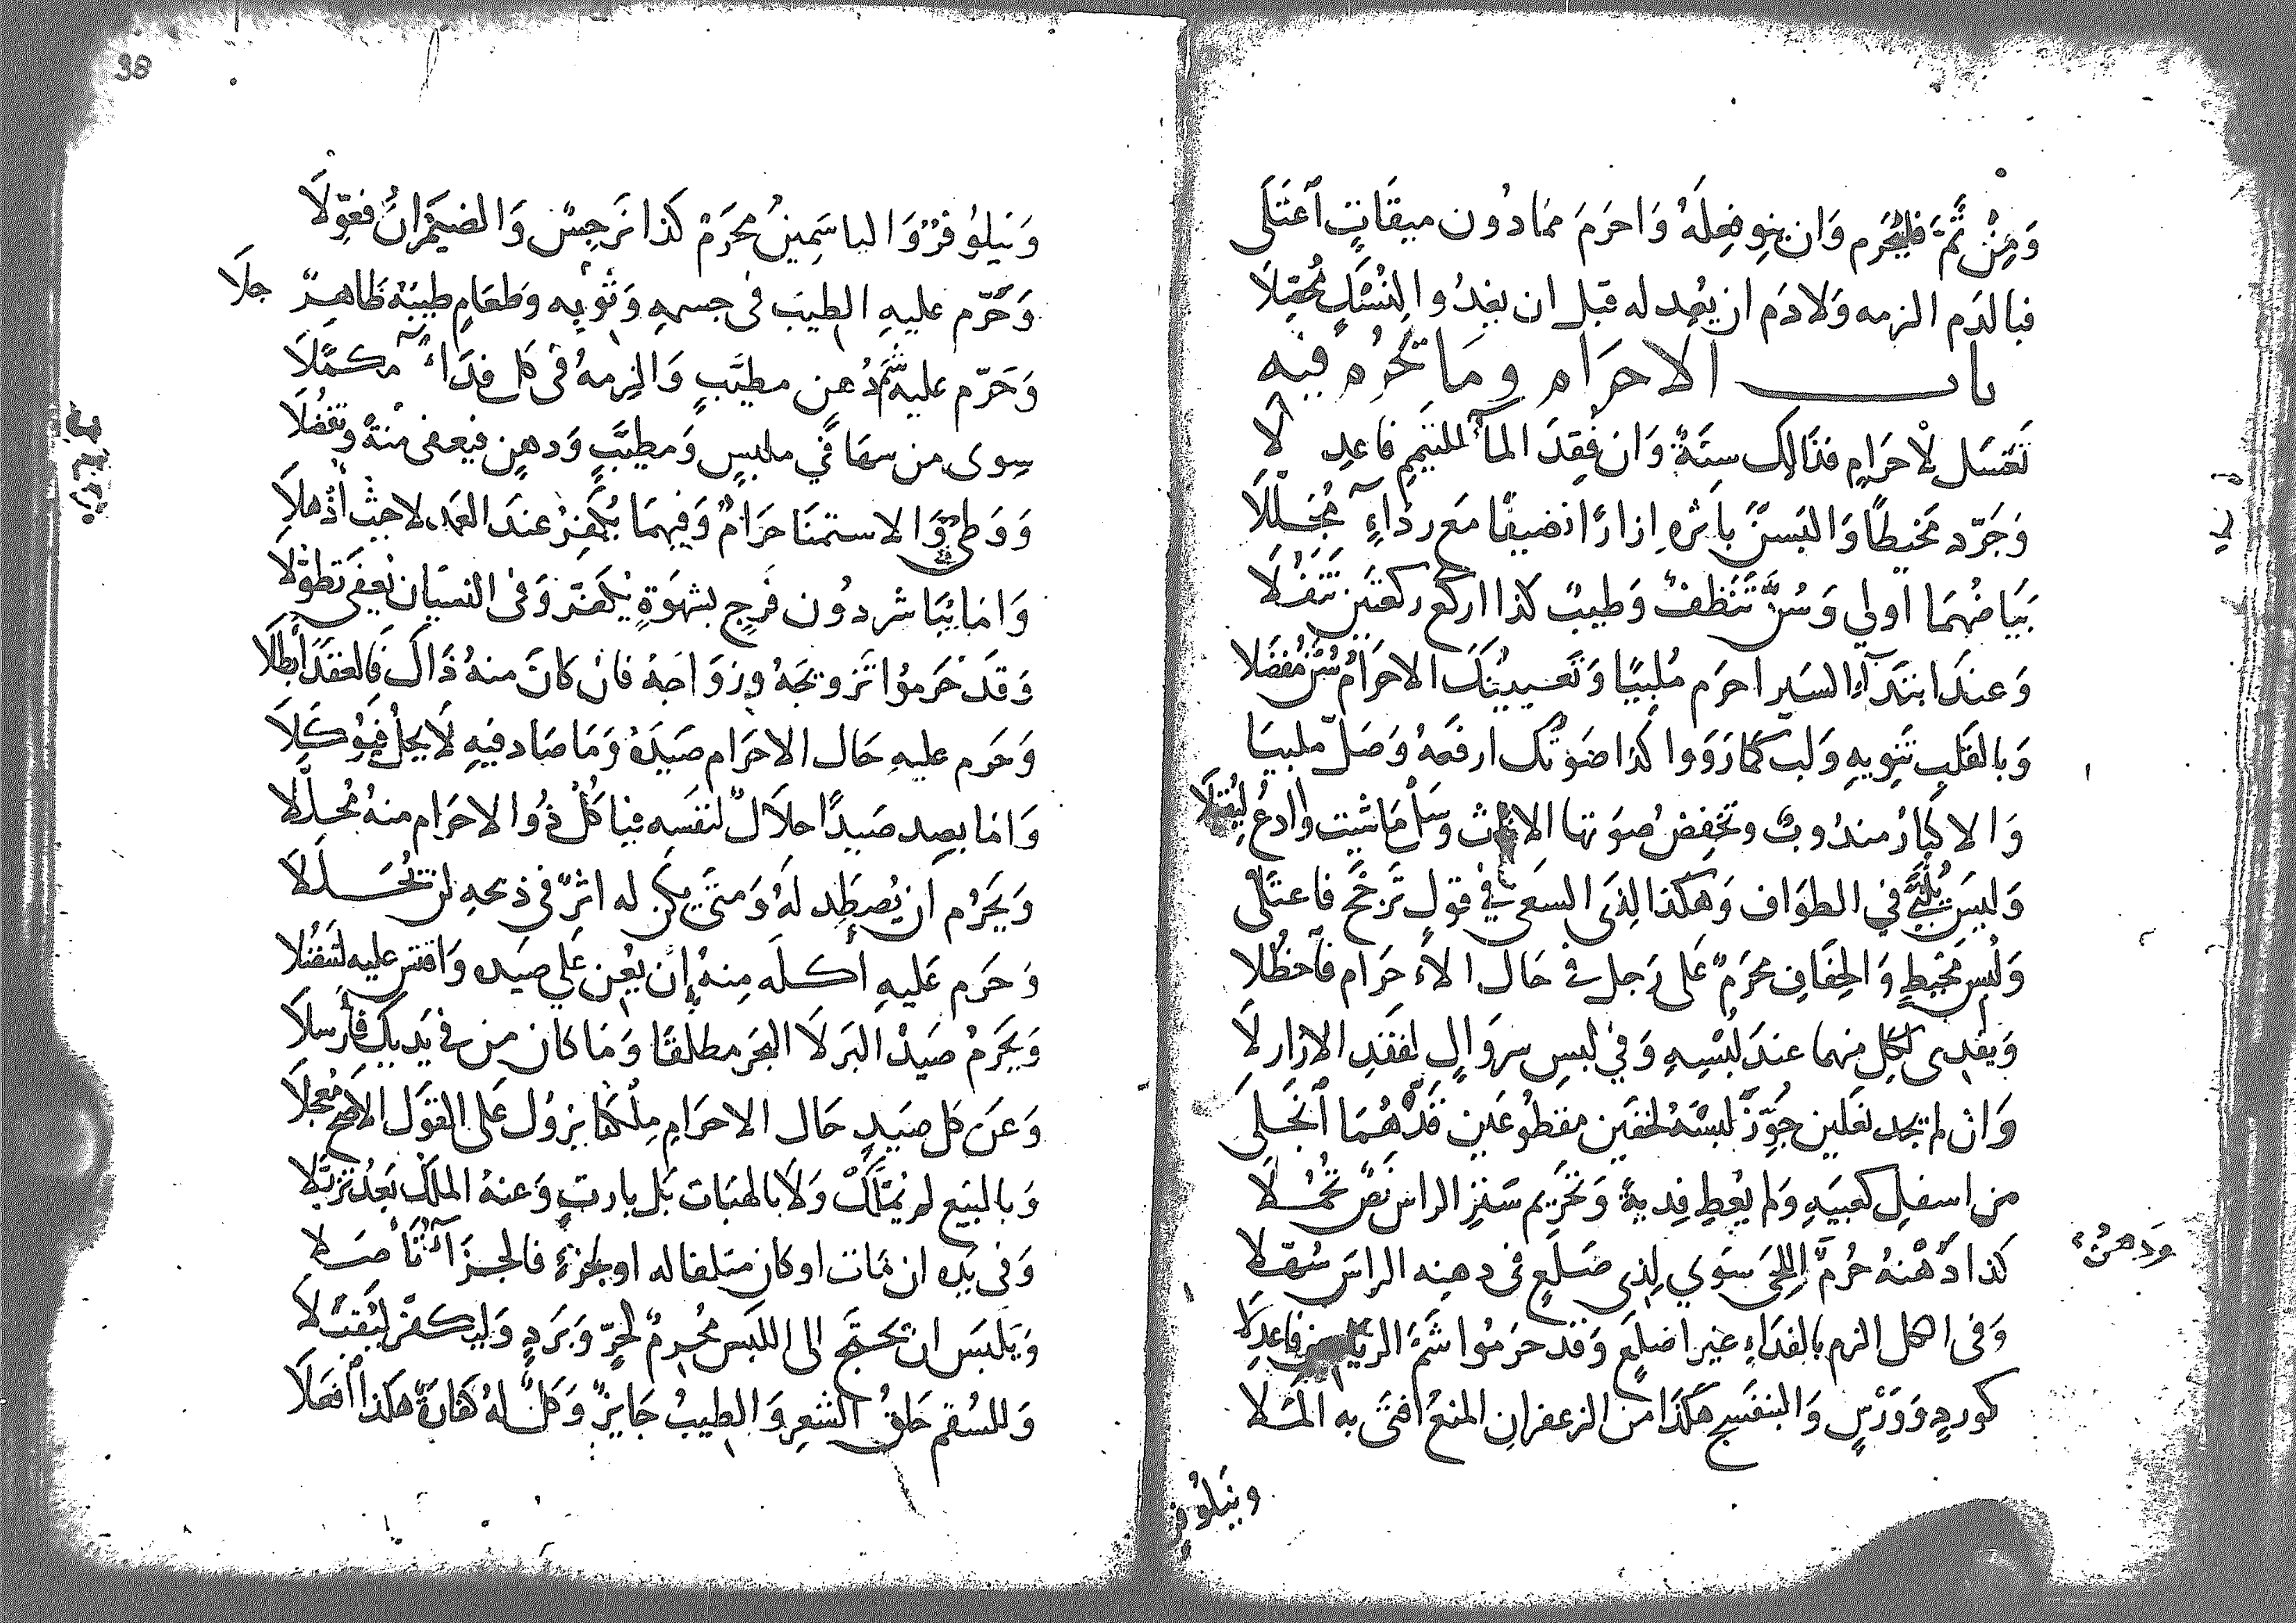 وَمِنْ ثَمَّ فليُحْرِم وَان ينوِ فِعلَهُ وَاحرَمَ ممَا دُون ميقَاتٍ اَعتَلَى
فبالدَم الزمه وَلا دَم ان يعُد له قبل ان يغدُوا لِنُسْكٍ مُحصِّلاَ
باب الاحرَام ومَا يَحْرُم فيه
تَغتسَل لإحرَامٍ فذَالِكَ سنَةٌ وَان فُقِدَ المآ للتيَمم فاعدِلَا
وَجَرّد مَخيطًا وَالبَسَنَّ باَثره اِزارًا نضيفًا مَع ردَاءٍ مُجَلّلاَ
بَيَاضُهمَا اولي وَسُنَّ تَنَظفٌ وَطيبٌ كذا اركع ركعَتين تَنَفُلَا
وَعندَ ابتدَآءِ السَير احرَم مُلبّيًا وَتَعيينُكَ الاحرَامُ سُنَّ مُفضَلا
وَبالقَلبِ تَنوِيهِ وَلبِّ كمَا رَوَوا كَذا صَوْتَك ارفعهُ وَصَلّ ملبيَا
وَالاكثارُ مندُوبٌ وتخفِضُ صوَتها الاناث وسَلْ مَا شيت وادعُ لتُقبَلَا
وَليسَ يُلَبّي في الطوَاف وَهكذا لِذي السَعي في قولٍ تَرجَّحَ فاعتَلَى
وَلبُس مَخيطٍ وَالخِفَافِ محرَمٌ عَلى رَجلٍ في حَال الاءحرَام فاَحظُلا
وَيفدِى لكلِ منهما عندَ لبُسِهِ وَفي لبسِ سروَالٍ لفقدِ الازار لَا
وَان لم يجد نعَلين جَوِّزْ لبسَهُ لخفَين مقطُوعَين قَدُّهُمَا اَنجَلى
من اسفلِ كعبَيهِ وَلم يعُطِ فِديةً وَتحَرِيم سَترِ الراس نَصٌّ تحُمّلَا
كذا دَهْنُهُ حُرمَّ اللِحَى سوَي لِذِى صَلَعٍ في دهنِه الراسَ سُهّلا
وَدهنٌ
وَفي الكل الزم بالفدَاءِ غيَر اصلَعٍ وَقَد حرَمُوا شَمَّ الرياحين فاعدِلَا
كوردٍ وَوَرْسٍ وَالبنفسَج هكَذَا من الزعفران المنعُ افتى به المَلا
ونَيلوُفر
وَنَيلوُفرٌ وَالياسَمينُ محرَمٌ كذا نَرجِسٌ وَالضيمَرانُ فعوّلَا
وَحَرّم عليهِ الطيبَ فى جسمهِ وَثوبِه وطعَامٍ طيبُهُ ظَاهرٌ جلاَ
وَحَرّم عليهِ شَمَّهُ عن مطيَّبٍ وَالزمهُ في كل فدَآءً مكمَّلاَ
سِوى من سهَا في ملبسٍ وَمطيَّبٍ وَدهنٍ فيعفى منهُ وتفضُلَا
وَوَطئٌ وَالاستمنَا حرَامٌ وَفيهمَا يُكفِرُ عندَ العَمد لا حيثُ أُذهِلَا
وَامَا يُبَاشر دوُن فَرجٍ بشهوَةٍ يُكَفِّرْ وَفى النسيَان يُعفى تطوّلا
وَقَد حَرموُا تَزويجَهُ وزوَاجَهُ فان كانَ منهُ ذاكَ فالعقدَ أبطلَا
وَحَرم عليهِ حَال الاحرَام صَيدَهُ وَمَا صَادَ فيهِ لَا يحِلُّ فيوُكَلاَ
وَامَا يصِد صَيدًا حلاَلٌ لنفسَه فيَاكُلُ ذوُالاحرَام منهُ مُحلّلَا
وَيَحرُم ان يُصطَد لَهُ وَمَتى يكن له اثرٌ فى ذبحهِ لن تُحلَّلَا
وَحَرم عَليهِ أكلَه مِنهُ إن يُعِن عَلي صيَده وَاقتسِ عليه لتفضُلا
وَيحَرمُ صَيدُ البَر لَا البَحر مطلقًا وَمَا كان من في يَديكَ فأَرسِلاَ
وَعَن كل صَيدٍ حَال الاحرَامِ مِلكُهَا يزوُل عَلى القَول الاصَحِ مُعجلَا
وَبالبَيع لم يُمَتلَك وَلَا بالهبَات بَل بارثٍ وَعنهُ الملكُ بَعدُ تزيَّلا
وَفي يَدِه ان مَات اوكان متلفا له اوبجُزءٍ فالجزَآءُ تأصلَا
وَيلبَس ان يحتَج الى اللبَس مُحرِمٌ لحَرٍّ وَبَردٍ وَليُكفّرْ ليُقبَلاَ
وَللسُقم حَلقُ الشعرِ وَالطيبُ جَايزٌ وَكلٌ لهُ كفّارَةٌ هكذا اَفعَلاَ